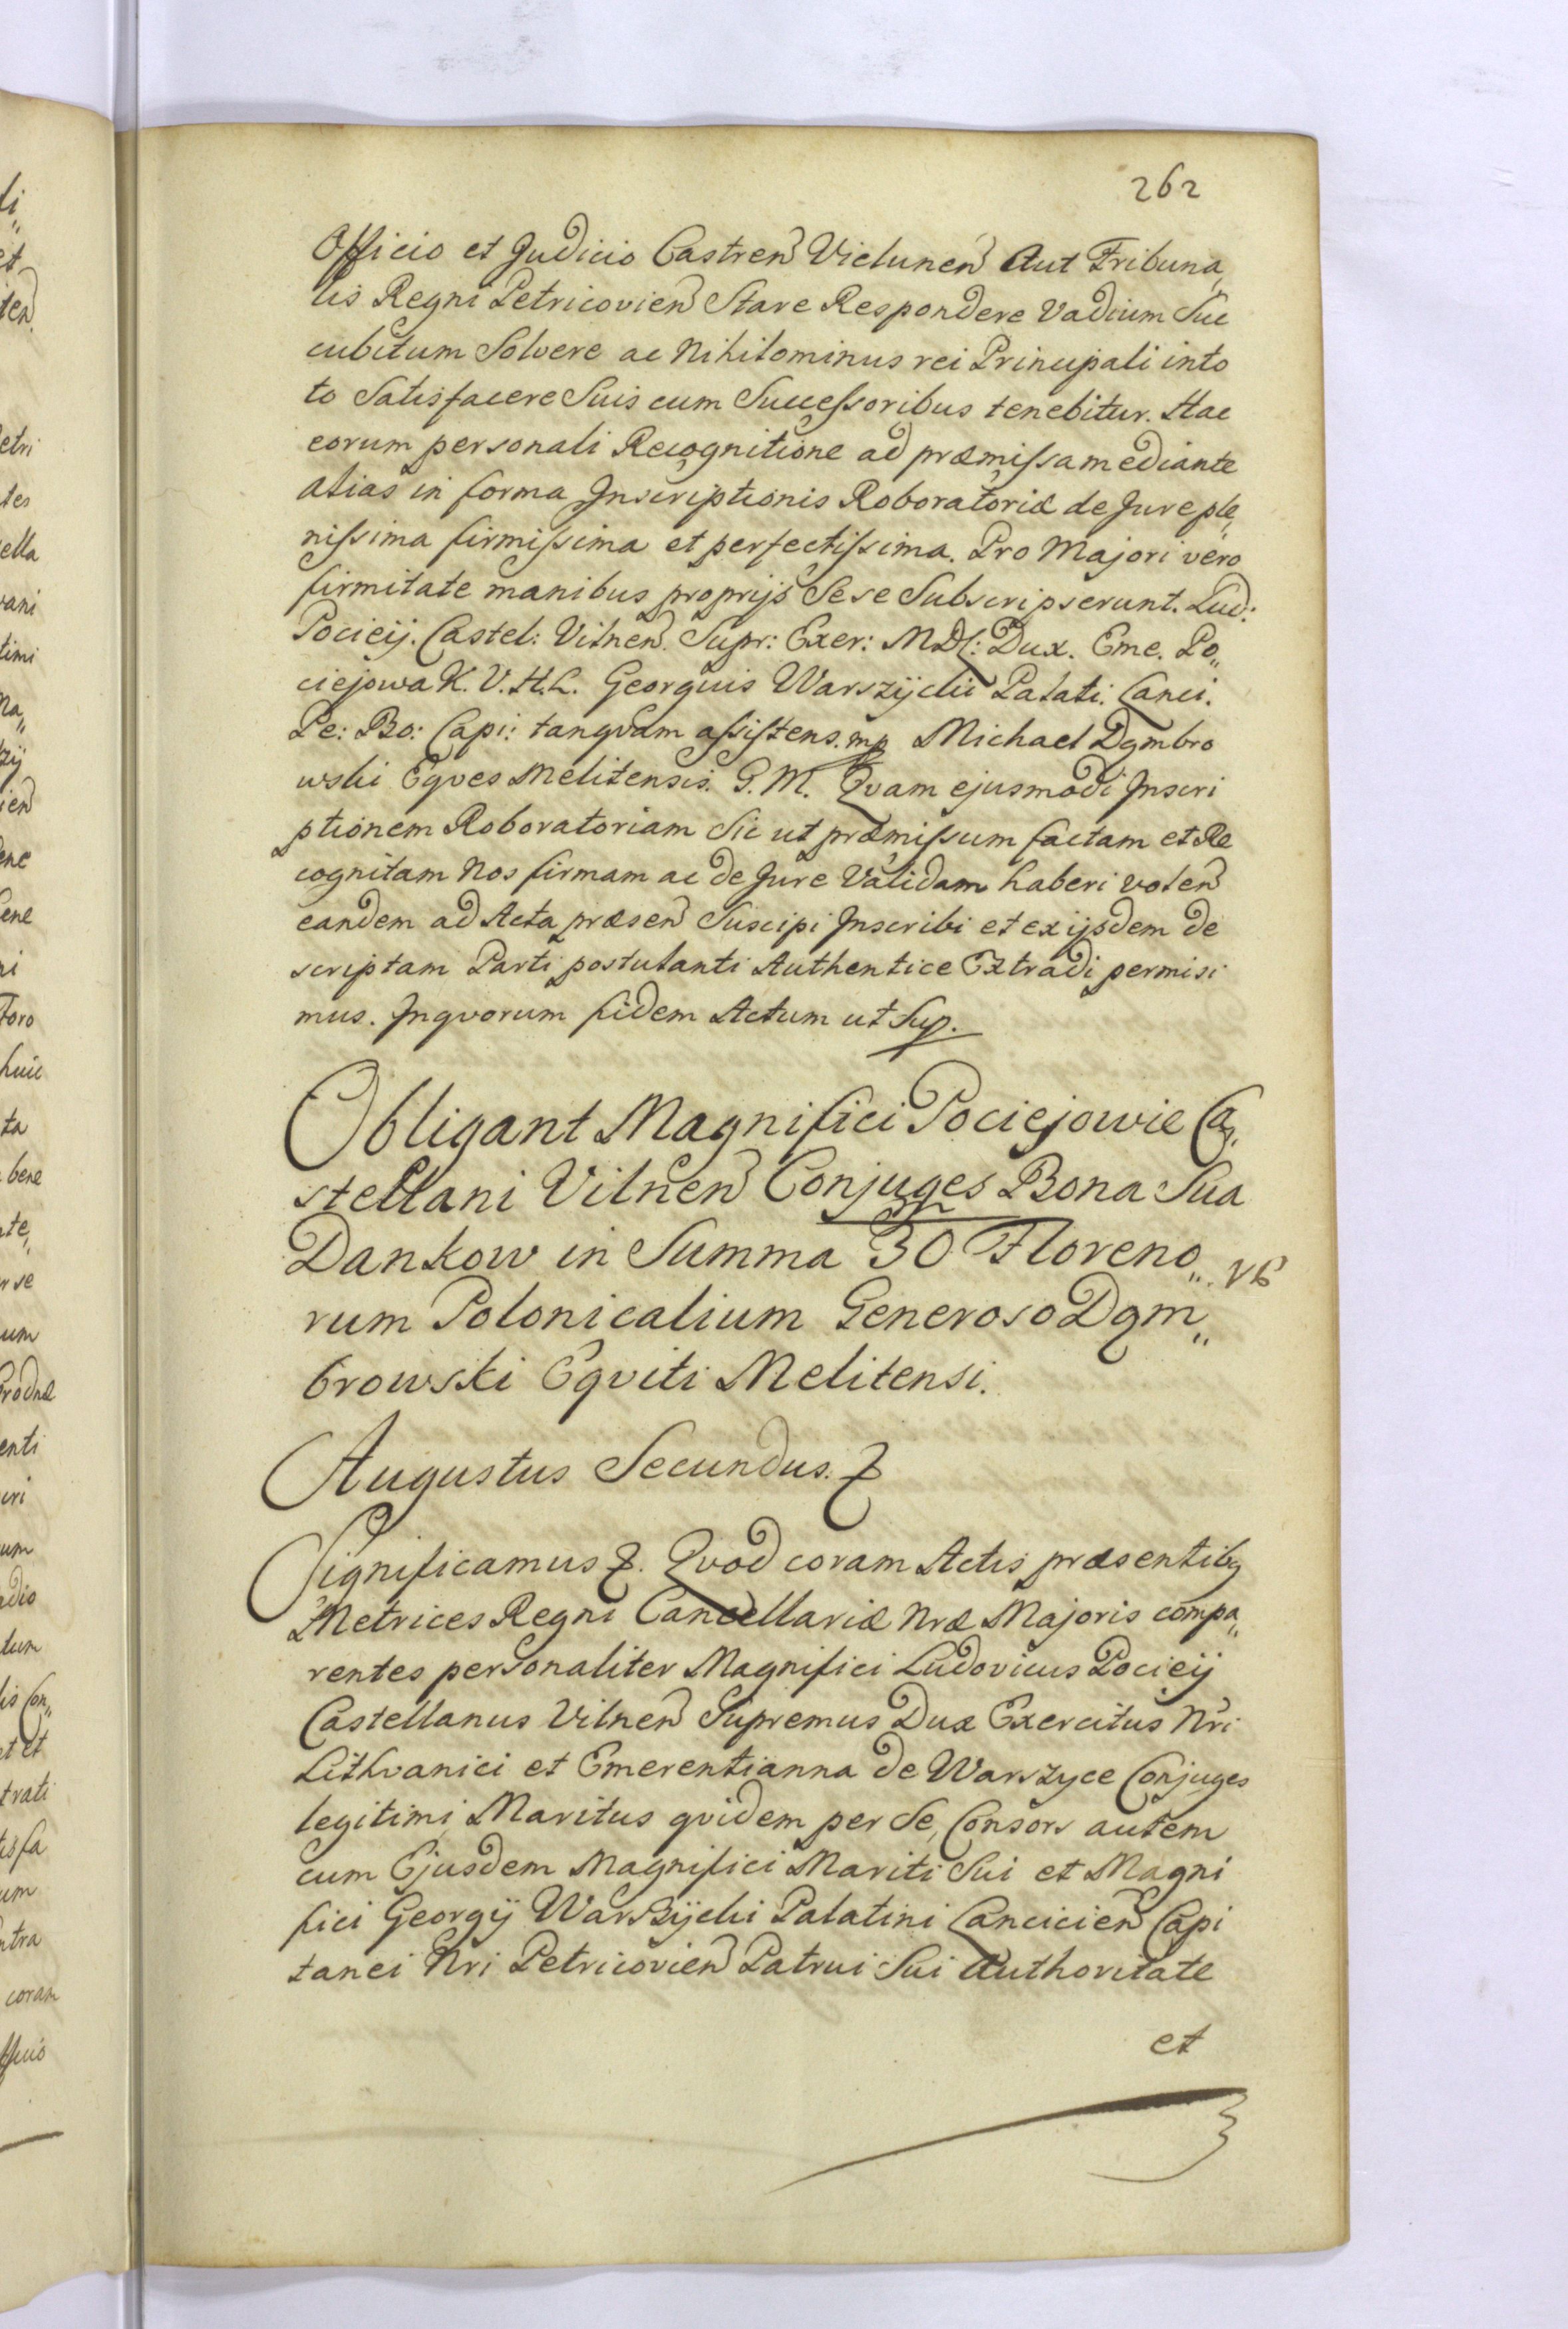 262
Officio et Judicio Castren Vielunen Aut Tribuna„
lis Regni Petricovien Stare Respondere Vadium Suc
cubitum Solvere ac Nihilominus rei Principali into
to Satisfacere Suis cum Successoribus tenebitur. Hac
eorum personali Recognitione ad præmissa mediante
alias in forma Inscriptionis Roboratoriæ de Jure ple„
nissima firmissima et perfectissima. Pro Majori vero
firmitate manibus proprijs Sese Subscripserunt. Lud:
Pocieij. Castel: Vilnen. Supr: Exer: MDL: Dux. Eme. Po„
ciejowa K. V. H. L. Georgius Warszijcki Palati. Lanci.
Pe: Bo: Capi: tanqvam assistens. mp Michael Dąmbro
wski Eqves Melitensis. G. M. Qvam ejusmodi Inscri
ptionem Roboratoriam Sic ut præmissum factam et Re
cognitam Nos firmam ac de Jure Validam haberi volen
eandem ad Acta præsen Suscipi Inscribi et ex ijsdem de
scriptam Parti postulanti Authentice Extradi permisi
mus. Inqvorum fidem Actum ut Sup.
Obligant Magnifici Pociejowie Ca„
stellani Vilnen Conjuges Bona Sua
Dankow in Summa 30 m Floreno„
rum Polonicalium Generoso Dąm„
browski Eqviti Melitensi.
Augustus Secundus. &
Significamus &. Qvod coram Actis præsentibq
Metrices Regni Cancellariæ Nræ Majoris compa„
rentes personaliter Magnifici Ludovicus Pocieij
Castellanus Vilnen Supremus Dux Exercitus Nri
Lithvanici et Emerentianna de Warszyce Conjuges
legitimi Maritus qvidem per Se, Consors autem
cum Ejusdem Magnifici Mariti Sui et Magni
fici Georgij Warszijcki Palatini Lancicien Capi
tanei Nri Petricovien Patrui Sui Authoritate
et